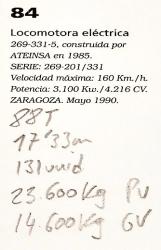 84
Locomotora eléctrica
269-331-5, construida por
ATEINSA en 1985.
SERIE: 269-201/331
Velocidad máxima: 160 Km./h.
Potencia: 3.100 Kw./4.216 CV.
ZARAGOZA. Mayo 1990.
88T
17'33m
131unid
23.600Kg PV
14.600Kg GV